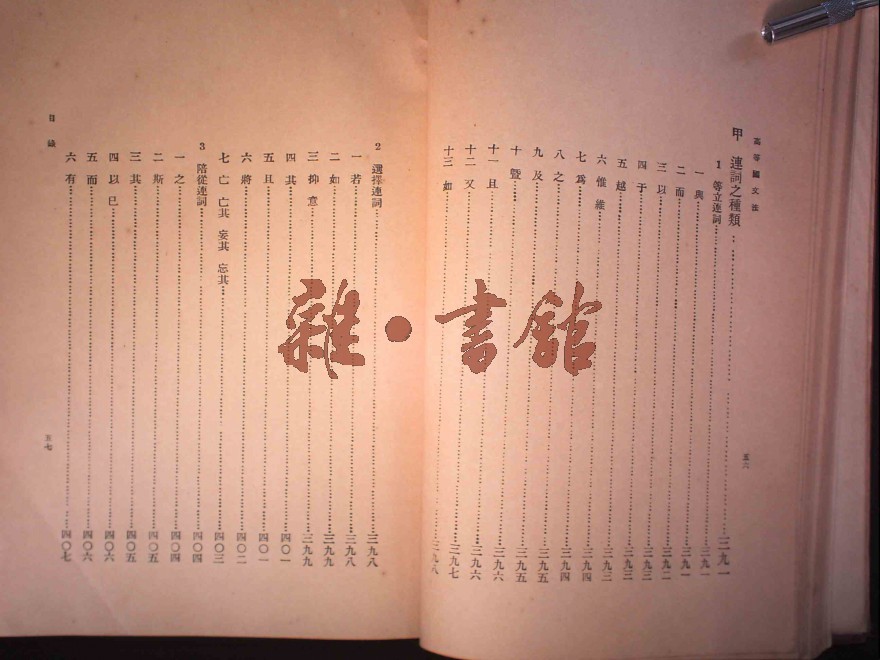 高等國文法
甲 連詞之種類……三九一
1 等立連詞……三九一
一 與……三九一
二 而……三九一
三 以……三九二
四 于……三九三
五 越……三九三
六 惟 維……三九三
七 爲……三九四
八 之……三九四
九 及……三九五
十 曁……三九五
十一 且……三九六
十二 又……三九六
十三 如……三九七
三九八
五六
2 選擇連詞……三九八
一 若……三九八
二 如……三九九
三 抑 意……三九九
四 其……四〇一
五 且……四〇一
六 將……四〇二
七 亡 亡其 妄其 忘其……四〇三
3 陪從連詞……四〇四
一 之……四〇四
二 斯……四〇五
三 其……四〇五
四 以 已……四〇六
五 而……四〇六
六 有……四〇七
目錄
五七
雜·書館